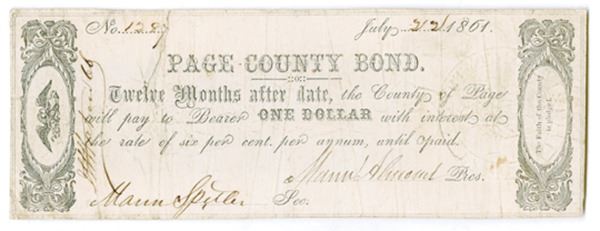 No. 1289
July 22 1861.
PAGE COUNTY BOND.
Twelve Months after date, the County of Page
will pay to Bearer ONE DOLLAR with interest at
the rate of six per cent. per annum, until paid.
Mann Almond Pres.
Mann Spitler Sec.
The Faith of this County
is pledged.